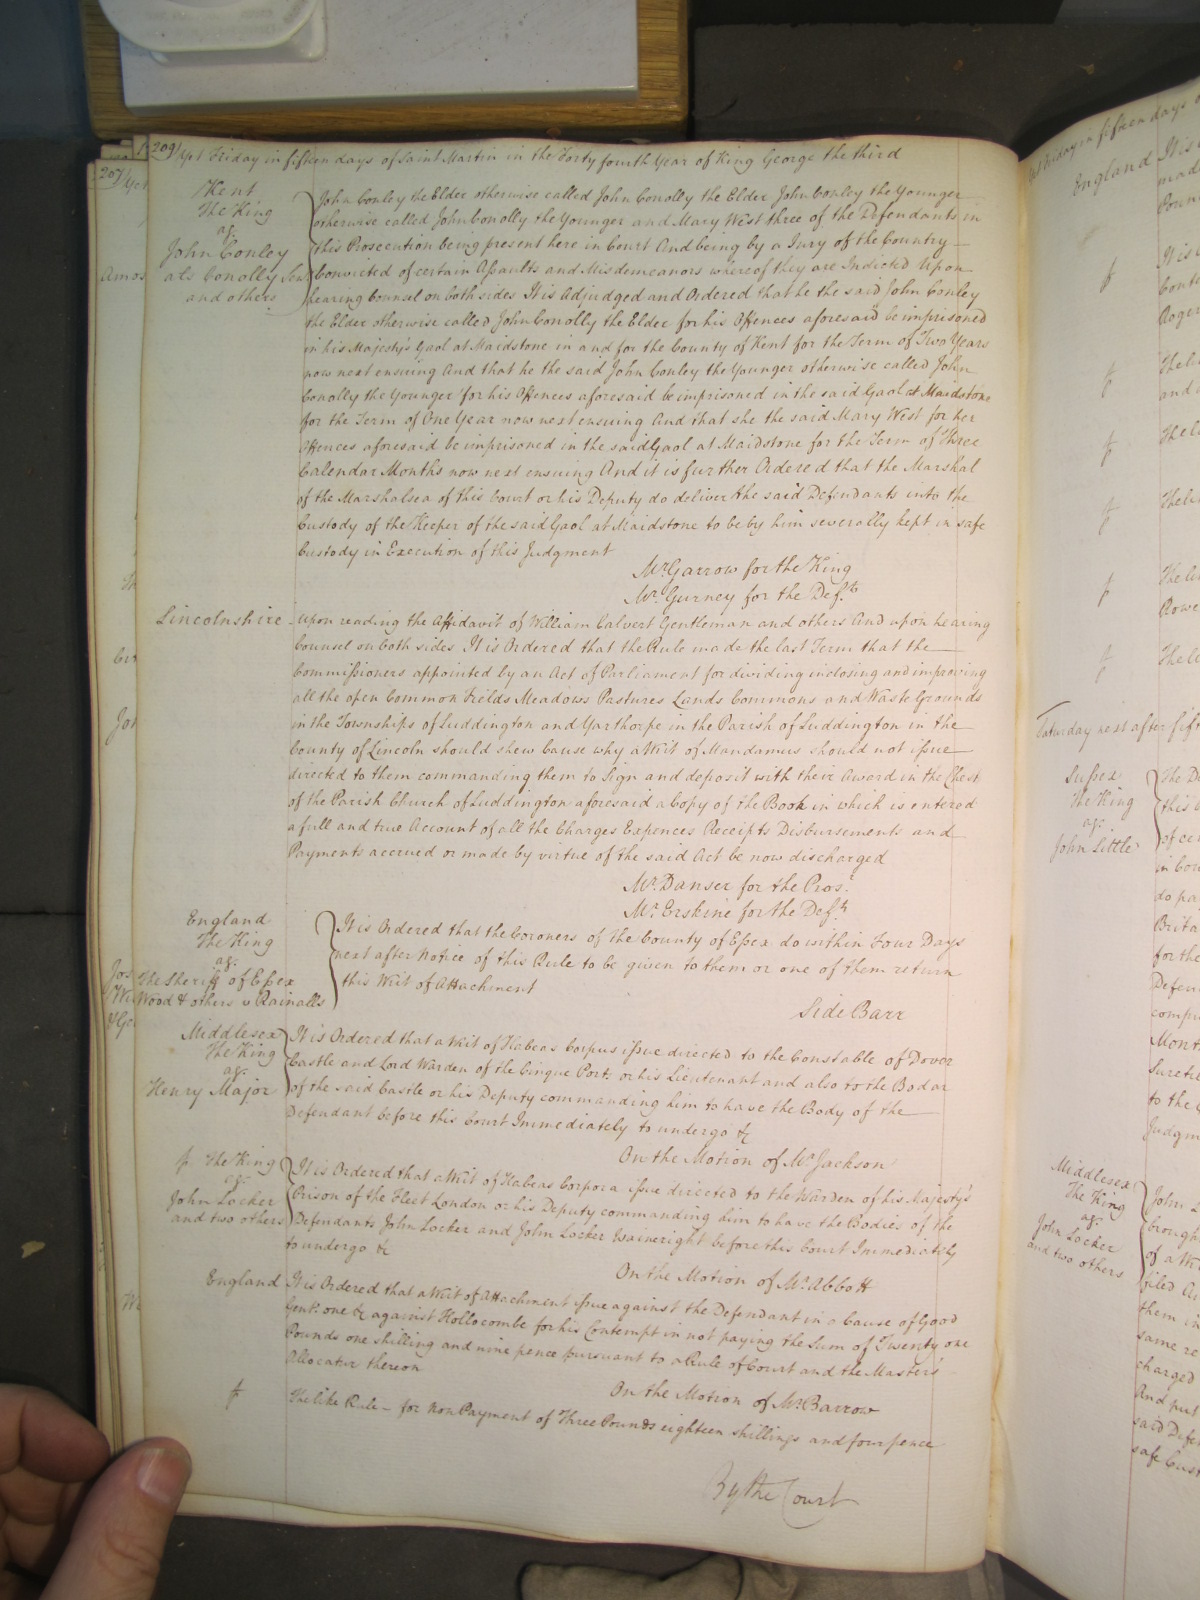 209
Yet Friday in fifteen days of Saint Martin in the Forty fourth Year of King George the third
Kent
The King
agt
John Conley
als Conolly Sen
and others
John Conley the Elder otherwise called John Conolly the Elder John Conley the Younger
otherwise called John Conolly the Younger and Mary West three of the Defendants in
this Prosecution being present here in Court And being by a Jury of the Country
Convicted of certain Assaults and Misdemeanors whereof they are Indicted Upon
hearing Counsel on both sides It is Adjudged and Ordered that he the said John Conley
the Elder otherwise called John Conolly the Elder for his Offences aforesaid be imprisoned
in his Majesty's Gaol at Maidstone in and for the County of Kent for the Term of Two Years
now next ensuing And that he the said John Conley the Younger otherwise called John
Conolly the Younger for his Offences aforesaid be imprisoned in the said Gaol at Maidstone
for the Term of One Year now next ensuing And that she the said Mary West for her
Offences aforesaid be imprisoned in the said Gaol at Maidstone for the Term of Three
Calendar Months now next ensuing And it is further Ordered that the Marshal
of the Marshalsea of this Court or his Deputy do deliver the said Defendants into the
Custody of the Keeper of the said Gaol at Maidstone to be by him severally kept in safe
Custody in Execution of this Judgment
Mr. Garrow for the King
Mr. Gurney for the Defts
Lincolnshire
Upon reading the Affidavit of William Calvert Gentleman and others And upon hearing
Counsel on both sides It is Ordered that the Rule made the last Term that the
Commissioners appointed by an Act of Parliament for dividing inclosing and improving
all the open Common Fields Meadows Pastures Lands Commons and Waste Grounds
in the Townships of Luddington and Garthorpe in the Parish of Luddington in the
County of Lincoln should shew Cause why a Writ of Mandamus should not issue
directed to them commanding them to Sign and deposit with their Award in the Chest
of the Parish Church of Luddington aforesaid a Copy of the Book in which is entered
a full and true Account of all the Charges Expences Receipts Disbursements and
Payments accrued or made by virtue of the said Act be now discharged
Mr. Danser for the Pros.r
Mr. Erskine for the Defts
England
The King
agt
The Sheriff of Essex
Wood & others v Rainalls
It is Ordered that the Coroners of the County of Essex do within Four Days
next after Notice of this Rule to be given to them or one of them return
this Writ of Attachment
Side Barr
Middlesex
The King
agt
Henry Major
It is Ordered that a Writ of Habeas Corpus issue directed to the Constable of Dover
Castle and Lord Warden of the Cinque Ports or his Lieutenant and also to the Bodar
of the said Castle or his Deputy commanding him to have the Body of the
Defendant before this Court Immediately to undergo &c
On the Motion of Mr. Jackson
The King
agt
John Locker
and two others
It is Ordered that a Writ of Habeas Corpora issue directed to the Warden of his Majesty's
Prison of the Fleet London or his Deputy commanding him to have the Bodies of the
Defendants John Locker and John Locker Wainwright before this Court Immediately
to undergo &c
On the Motion of Mr. Abbott
England
It is Ordered that a Writ of Attachment issue against the Defendant in a Cause of Good
Gent. one &c against Hollocombe for his Contempt in not paying the Sum of Twenty one
Pounds one shilling and nine pence pursuant to a Rule of Court and the Master's
Allocatur thereon
On the Motion of Mr. Barrow
The like Rule - for Non Payment of Three Pounds eighteen shillings and four pence
By the Court
England
Saturday next after
Sussex
The King
agt
John Little
Middlesex
The King
agt
John Locker
and two others